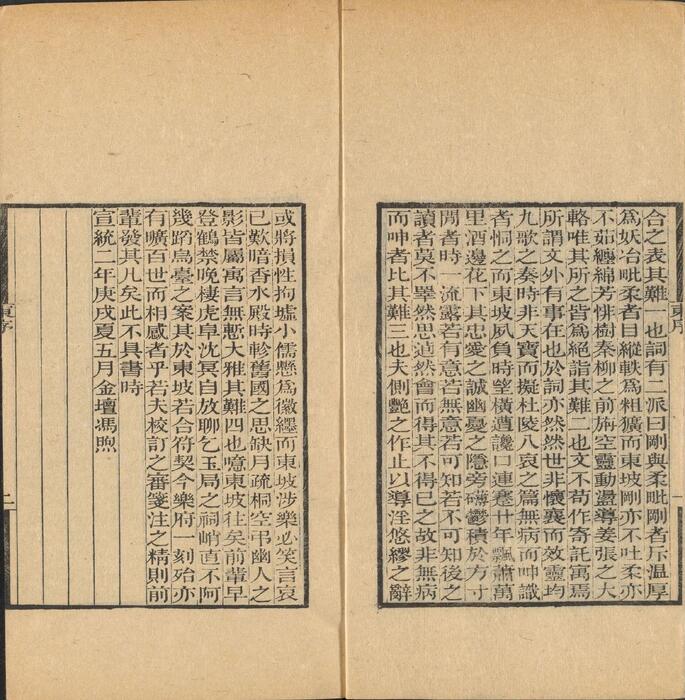 合之表其難一也詞有二派曰剛與柔毗剛者斥溫厚
爲妖冶毗柔者目縱軼爲粗獷而東坡剛亦不吐柔亦
不茹纏綿芳悱樹秦柳之前旃空靈動盪導姜張之大
輅唯其所之皆爲絕詣其難二也文不苟作寄託寓焉
所謂文外有事在也於詞亦然然世非懷襄而效靈均
九歌之奏時非天寶而擬杜陵八哀之篇無病而呻識
者恫之而東坡夙負時望橫遭讒口連蹇廿年飄蕭萬
里酒邊花下其忠愛之誠幽憂之隱旁礴鬱積於方寸
閒者時一流露若有意若無意若可知若不可知後之
讀者莫不睪然思逌然會而得其不得已之故非無病
而呻者比其難三也夫側豔之作止以導淫悠繆之辭
或將損性拘墟小儒懸爲徽纆而東坡涉樂必笑言哀
已歎暗香水殿時軫舊國之思缺月疏桐空弔幽人之
影皆屬寓言無慙大雅其難四也噫東坡往矣前輩早
登鶴禁晚棲虎阜沈冥自放聊乞玉局之祠峭直不阿
幾蹈烏臺之案其於東坡若合符契今樂府一刻殆亦
有曠百世而相感者乎若夫校訂之審箋注之精則前
輩發其凡矣此不具書時
宣統二年庚戌夏五月金壇馮煦
東序
一
東序
二